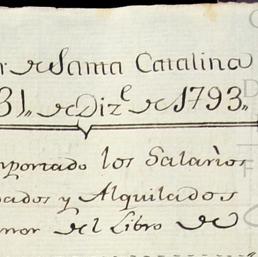 r de Santa Catalina
31,, de Diz.e de 1793,,
mportado los Salarios
pados y Alquilados
enor del Libro de